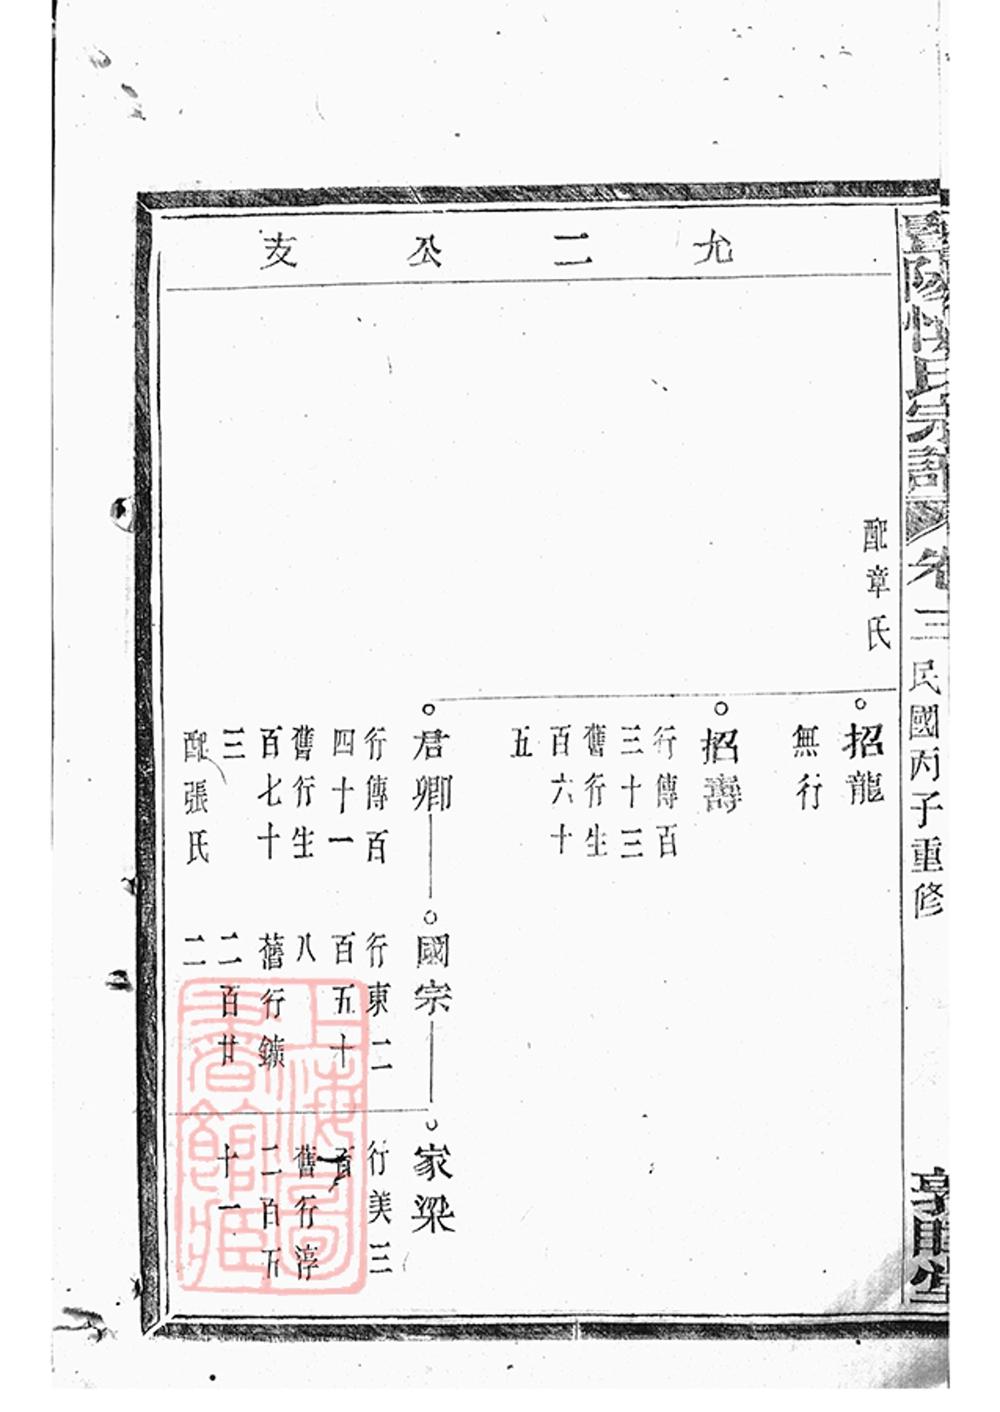 暨陽忄氏宗譜 卷三 民國丙子重修 敦睦堂
允二公支
配章氏
招龍
無行
招壽
行傳百
三十三
舊行生
百六十
五
君卿
行傳百
四十一
舊行生
百七十
三
配張氏
國宗
行東二
百五十
八
舊行鑌
二百廿
二
家梁
行美三
百
舊行淳
二百五
十一
上海圖書館藏